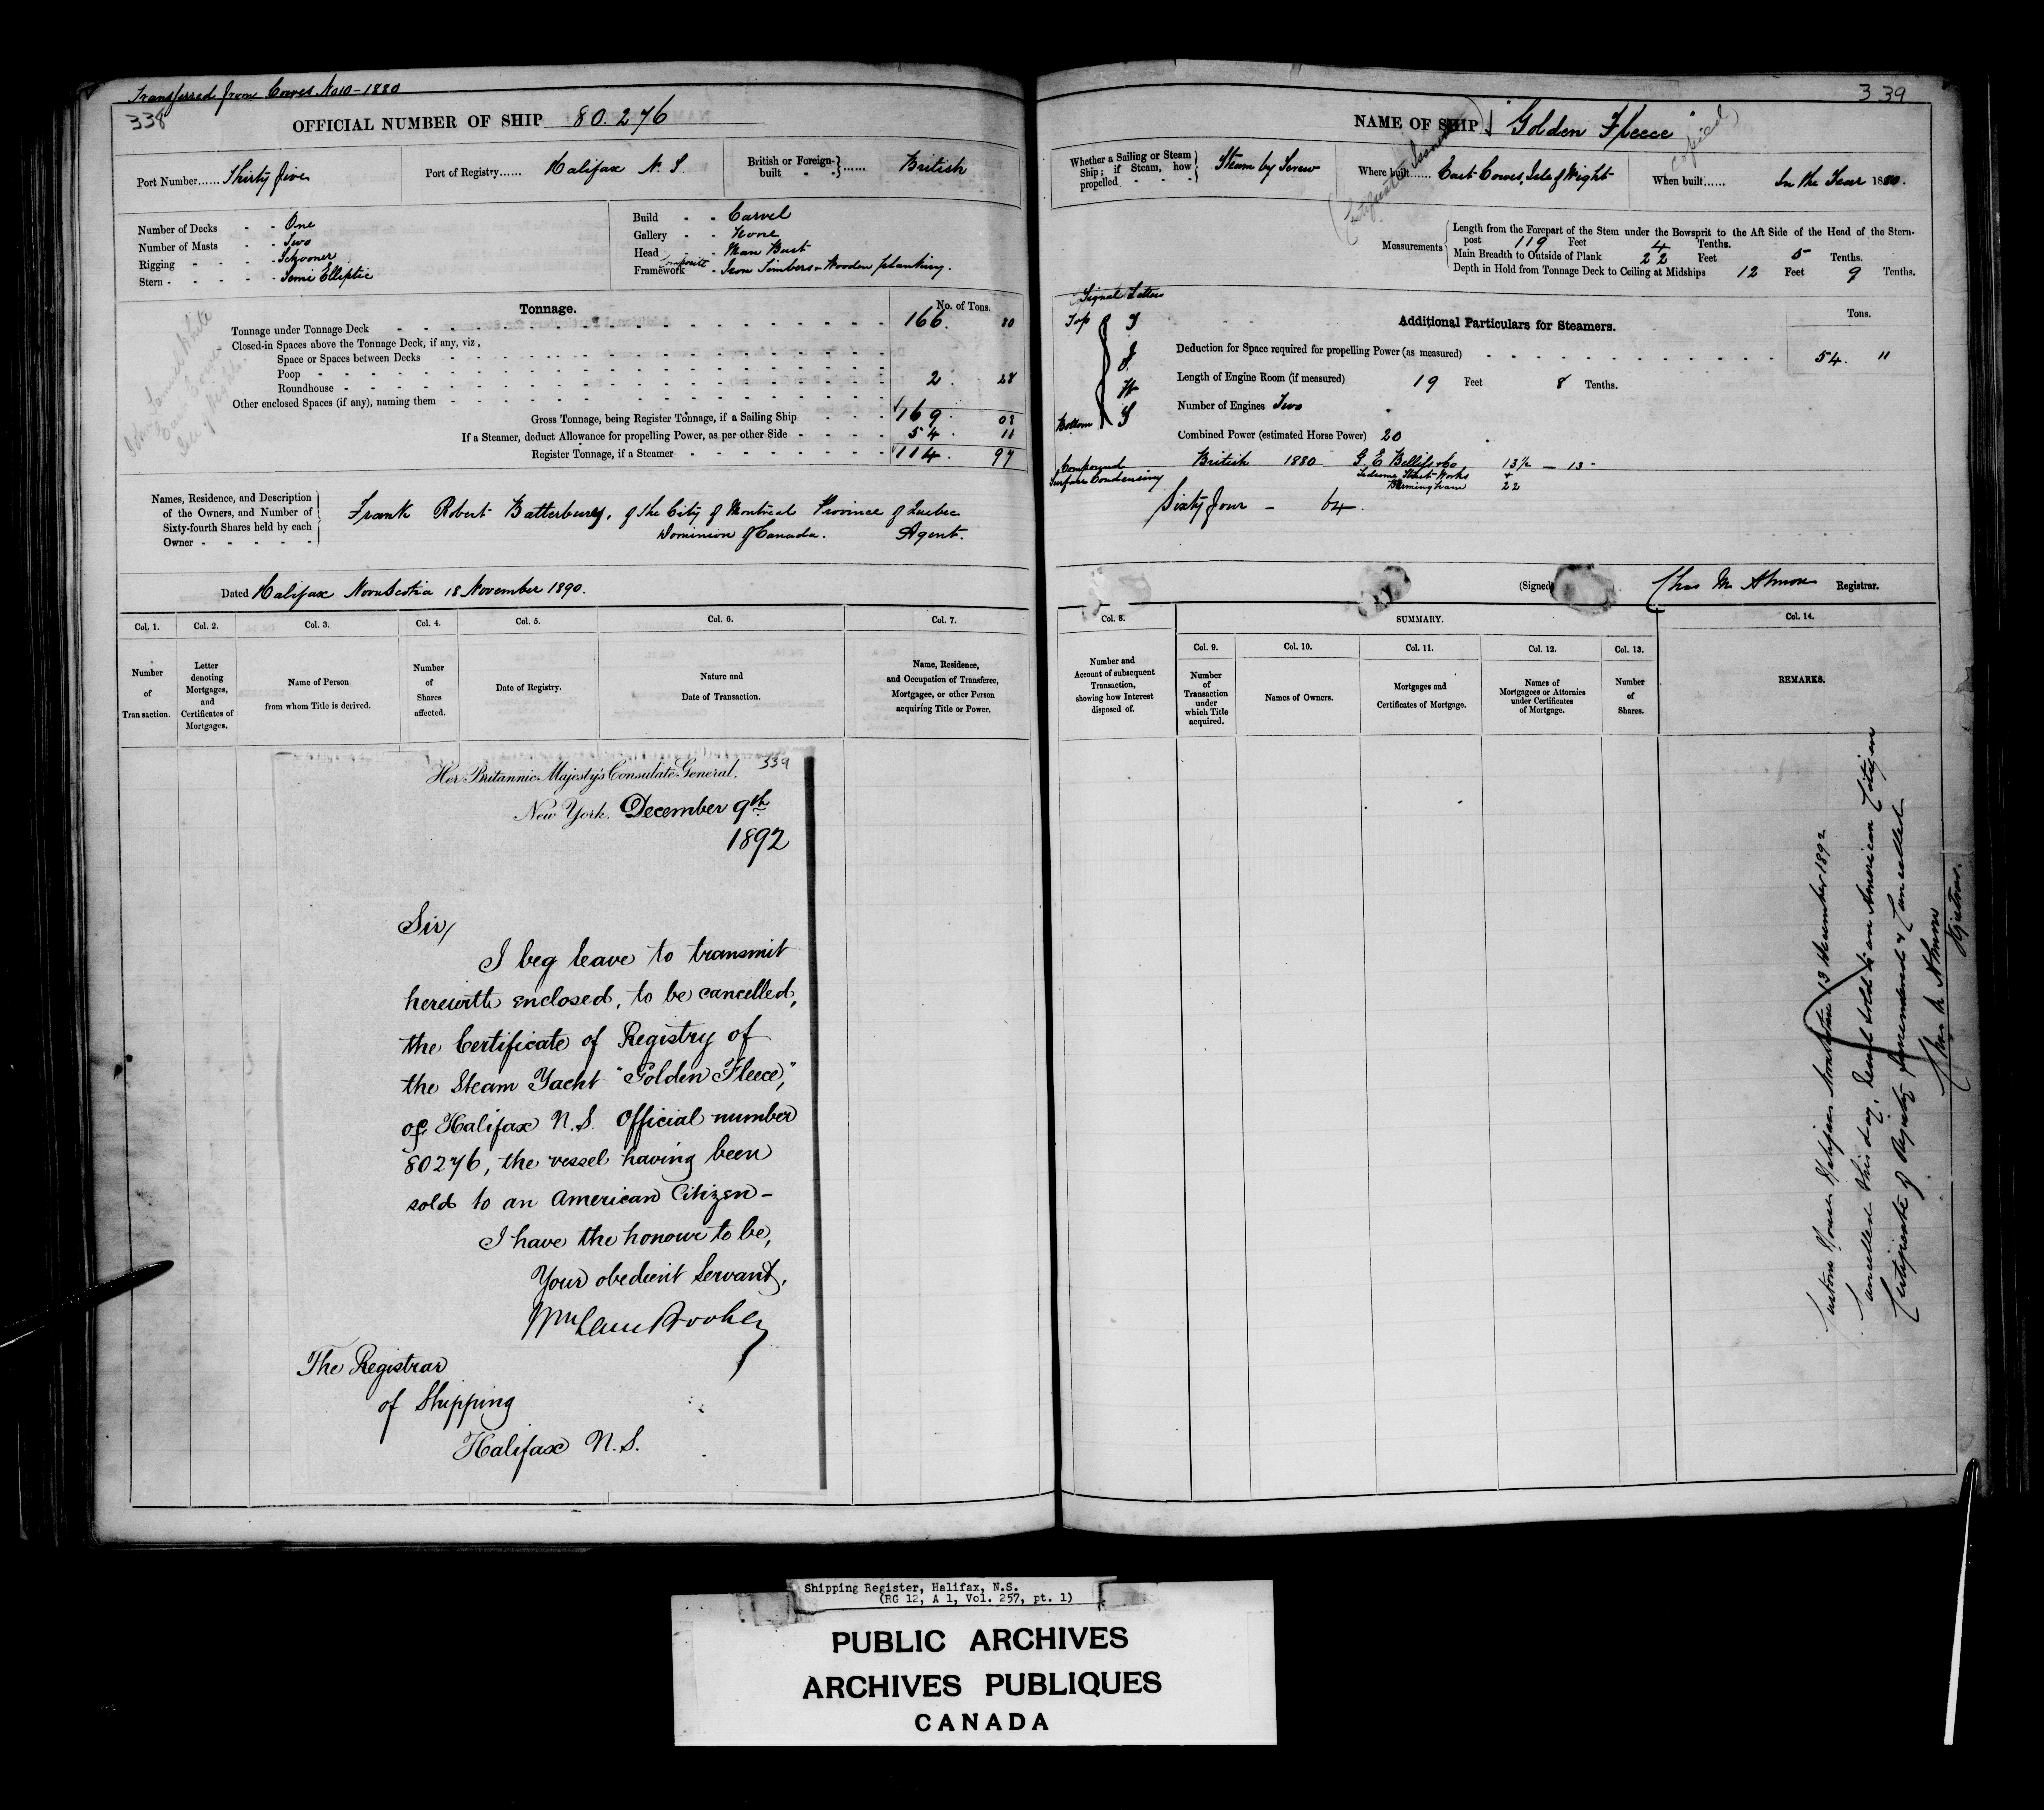 Transferred from Cowes No 10 - 1880
338
OFFICIAL NUMBER OF SHIP 80.276
Port Number...... Thirty five
Port of Registry...... Halifax N. S.
British or Foreign-built ...... British
Number of Decks - - One
Number of Masts - - Two
Rigging - - - - Schooner
Stern - - - - - Semi Elliptic
Build - - Carvel
Gallery - - None
Head - - Man Bust
Framework - Composite Iron Timbers & Wooden planking.
Tonnage.
No. of Tons.
Tonnage under Tonnage Deck 166. 80
Closed-in Spaces above the Tonnage Deck, if any, viz,
Space or Spaces between Decks
Poop
Roundhouse 2. 28
Other enclosed Spaces (if any), naming them
Gross Tonnage, being Register Tonnage, if a Sailing Ship 169. 08
If a Steamer, deduct Allowance for propelling Power, as per other Side 54. 11
Register Tonnage, if a Steamer 114. 97
John Samuel White
East Cowes
Isle of Wight
Names, Residence, and Description
of the Owners, and Number of
Sixty-fourth Shares held by each
Owner - - - - -
Frank Robert Batterbury, of the City of Montreal Province of Quebec
Dominion of Canada. Agent.
Dated Halifax Nova Scotia 18 November 1890.
Col. 1. Col. 2. Col. 3. Col. 4. Col. 5. Col. 6. Col. 7.
Number
of
Transaction.
Letter
denoting
Mortgages,
and
Certificates of
Mortgages.
Name of Person
from whom Title is derived.
Number
of
Shares
affected.
Date of Registry.
Nature and
Date of Transaction.
Name, Residence,
and Occupation of Transferee,
Mortgagee, or other Person
acquiring Title or Power.
339
Her Britannic Majesty's Consulate General.
New York. December 9th
1892
Sir,
I beg leave to transmit
herewith enclosed, to be cancelled,
the Certificate of Registry of
the Steam Yacht "Golden Fleece,"
of Halifax N.S. Official number
80276, the vessel having been
sold to an American Citizen -
I have the honour to be,
Your obedient Servant,
The Registrar
of Shipping
Halifax N.S.
339
NAME OF SHIP "Golden Fleece"
copied)
Whether a Sailing or Steam
Ship; if Steam, how
propelled - - -
Steam by Screw
Where built...... East Cowes, Isle of Wight
When built...... In the Year 1880.
Measurements
Length from the Forepart of the Stem under the Bowsprit to the Aft Side of the Head of the Stern-
post 119 Feet 4 Tenths.
Main Breadth to Outside of Plank 22 Feet 5 Tenths.
Depth in Hold from Tonnage Deck to Ceiling at Midships 12 Feet 9 Tenths.
Signal Letters
Top
T
J
W
S
Bottom
Additional Particulars for Steamers.
Tons.
Deduction for Space required for propelling Power (as measured) 54. 11
Length of Engine Room (if measured) 19 Feet 8 Tenths.
Number of Engines Two
Combined Power (estimated Horse Power) 20
Compound
Surface Condensing
British 1880 G. E. Belliss & Co 13½ - 13
Ledsome Street Works +
Birmingham 22
Sixty four - 64.
(Signed) Chas M. Almon Registrar.
Col. 8. SUMMARY. Col. 14.
Col. 9. Col. 10. Col. 11. Col. 12. Col. 13.
Number and
Account of subsequent
Transaction,
showing how Interest
disposed of.
Number
of
Transaction
under
which Title
acquired.
Names of Owners.
Mortgages and
Certificates of Mortgage.
Names of
Mortgagees or Attornies
under Certificates
of Mortgage.
Number
of
Shares.
REMARKS.
Custom House Halifax Nova Scotia 13 December 1892
Cancelled this day, Vessel sold to an American Citizen
Certificate of Registry surrendered & Cancelled
Chas M Almon
Registrar.
Shipping Register, Halifax, N.S.
(RG 12, A 1, Vol. 257, pt. 1)
PUBLIC ARCHIVES
ARCHIVES PUBLIQUES
CANADA